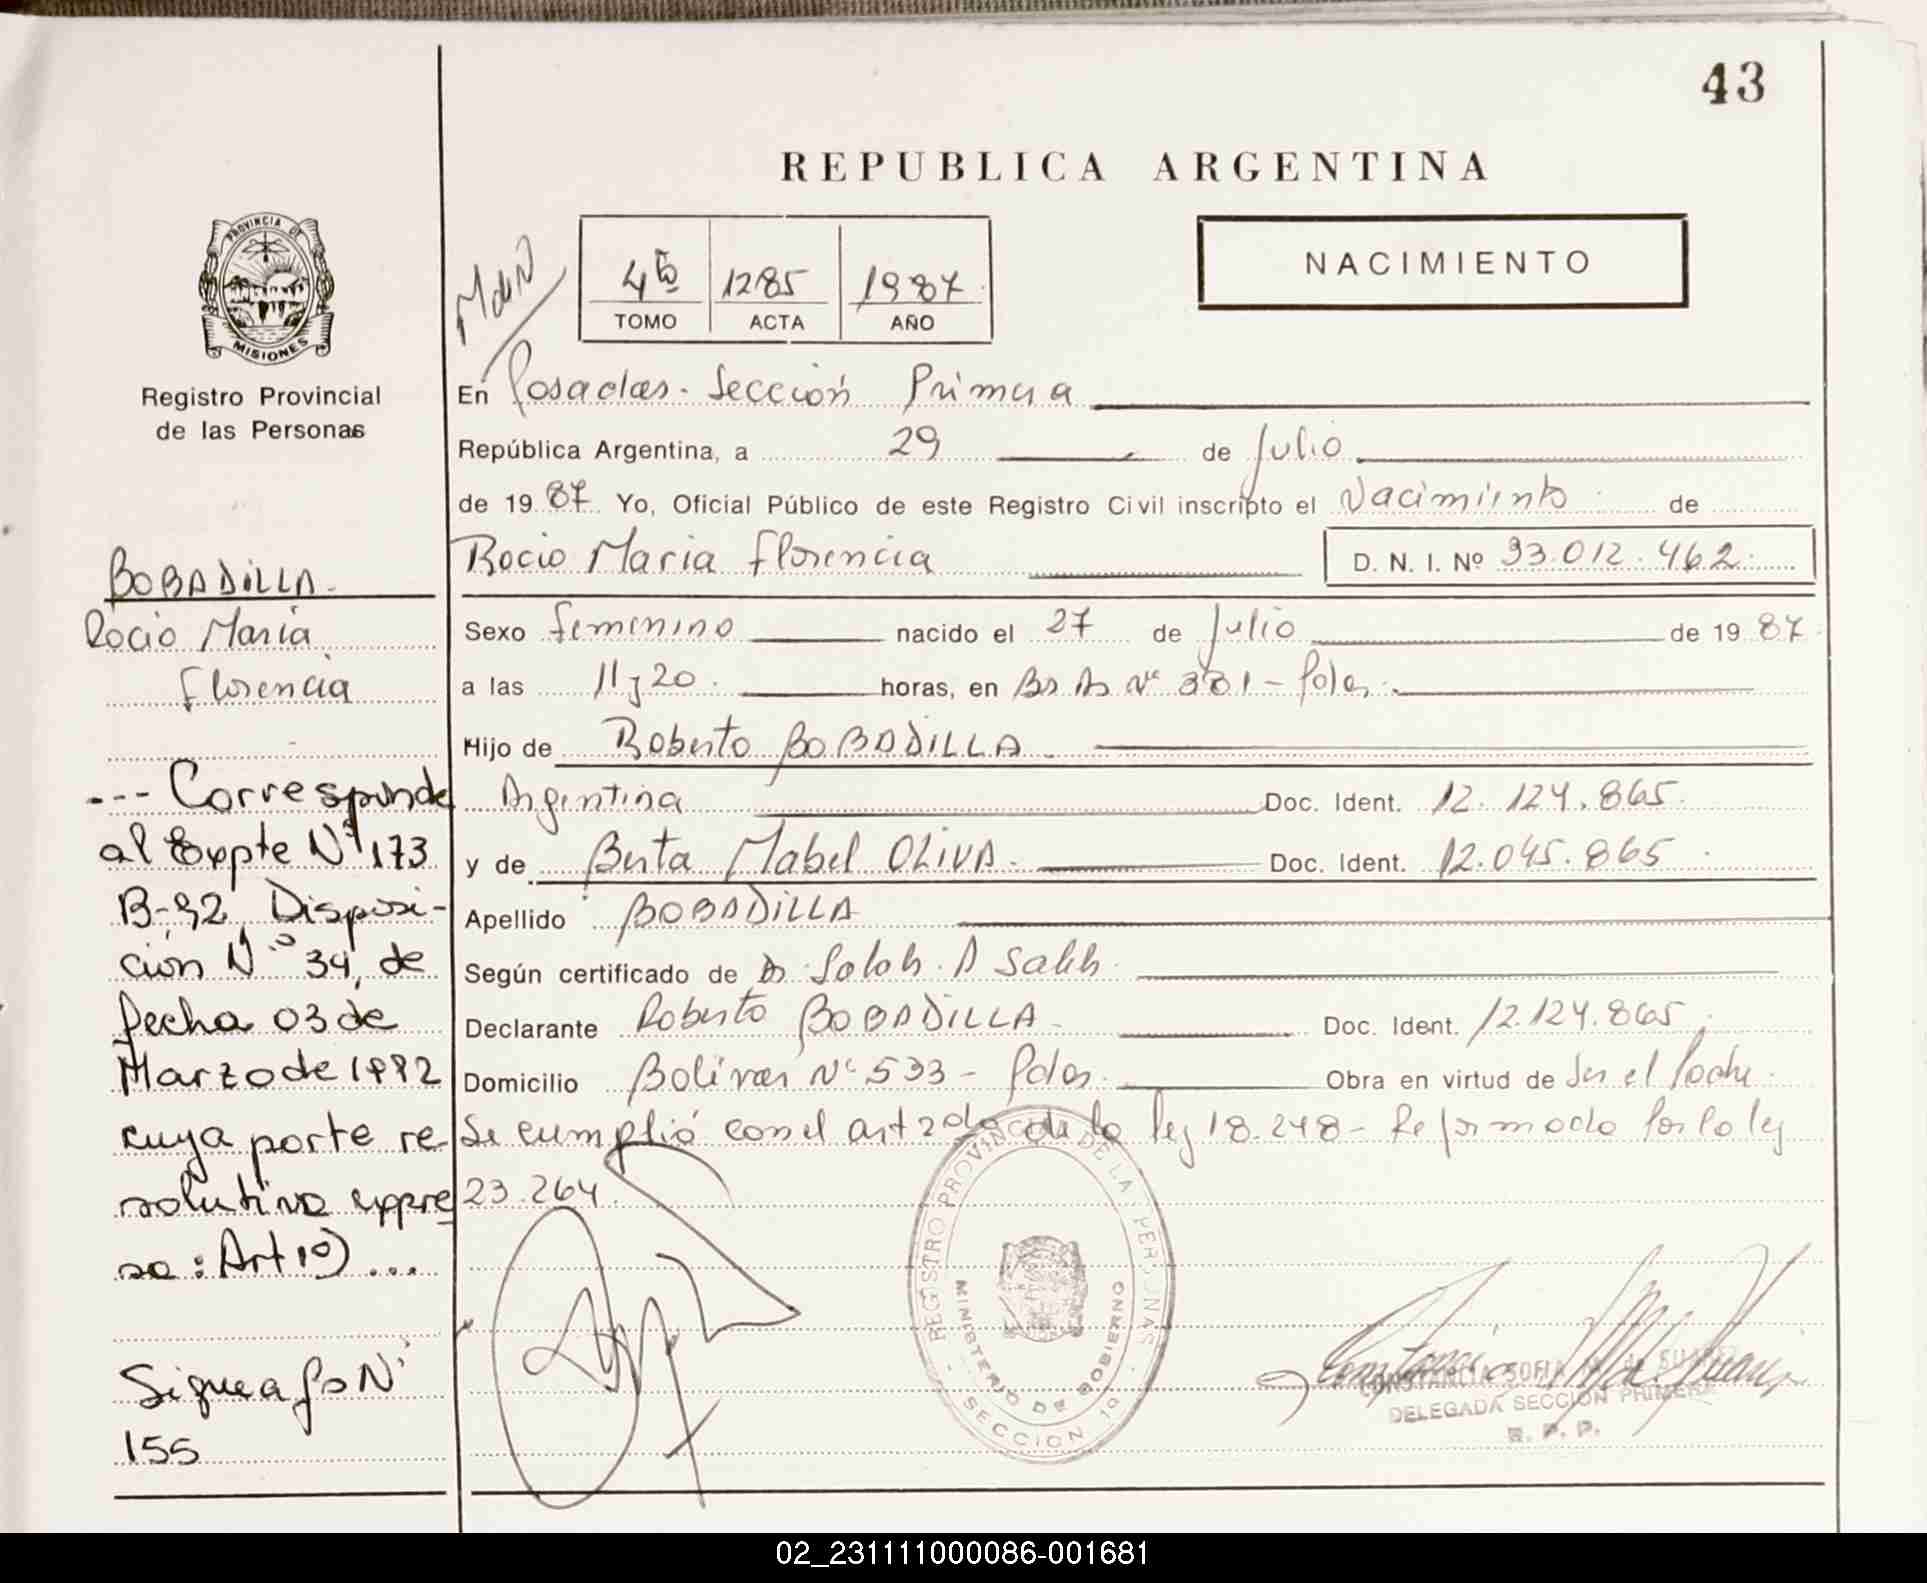 43
REPUBLICA ARGENTINA
PROVINCIA DE
MISIONES
Registro Provincial
de las Personas
4to 1285 1987
TOMO ACTA AÑO
NACIMIENTO
En Posadas - Sección Primera
República Argentina, a 29 de Julio
de 19 87 Yo, Oficial Público de este Registro Civil inscripto el Nacimiento de
Rocio Maria Florencia D. N. I. Nº 33.012.462
Sexo femenino nacido el 27 de Julio de 19 87
a las 11 y 20 horas, en Bs As Nº 331 - Pdas.
Hijo de Roberto BOBADILLA
Argentina Doc. Ident. 12.124.865
y de Berta Mabel OLIVA Doc. Ident. 12.045.865
Apellido BOBADILLA
Según certificado de
Declarante Roberto BOBADILLA Doc. Ident. 12.124.865
Domicilio Bolivar Nº 533 - Pdas. Obra en virtud de Ser el Padre.
Se cumplió con el art 2do de la ley 18.248 - Reformada por la ley
23.264.
BOBADILLA
Rocio Maria
Florencia
--- Corresponde
al Expte Nº 173
B-92 Disposi-
ción Nº 34, de
fecha 03 de
Marzo de 1992
cuya parte re-
solutiva expre
sa: Art 1º) ...
Sigue a fo Nº
155
REGISTRO PROVINCIAL DE LA PERSONAS
MINISTERIO DE GOBIERNO
SECCION 1ª
CONSTANCIA SOFIA M. de SUAREZ
DELEGADA SECCION PRIMERA
R. P. P.
02_231111000086-001681